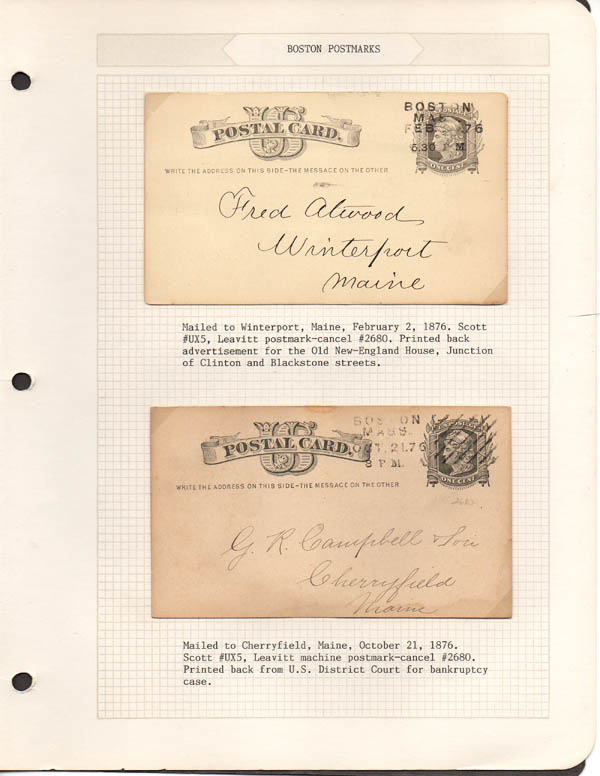 BOSTON POSTMARKS
US
POSTAL CARD.
WRITE THE ADDRESS ON THIS SIDE-THE MESSAGE ON THE OTHER
BOSTON
MAS
FEB. 76
6.30 P M
ONE CENT
Fred Atwood
Winterport
Maine
Mailed to Winterport, Maine, February 2, 1876. Scott
#UX5, Leavitt postmark-cancel #2680. Printed back
advertisement for the Old New-England House, Junction
of Clinton and Blackstone streets.
US
POSTAL CARD.
WRITE THE ADDRESS ON THIS SIDE-THE MESSAGE ON THE OTHER
BOSTON
MASS.
T. 21. 76
8 P M.
ONE CENT
2680
G. R. Campbell & Son
Cherryfield
Maine
Mailed to Cherryfield, Maine, October 21, 1876.
Scott #UX5, Leavitt machine postmark-cancel #2680.
Printed back from U.S. District Court for bankruptcy
case.